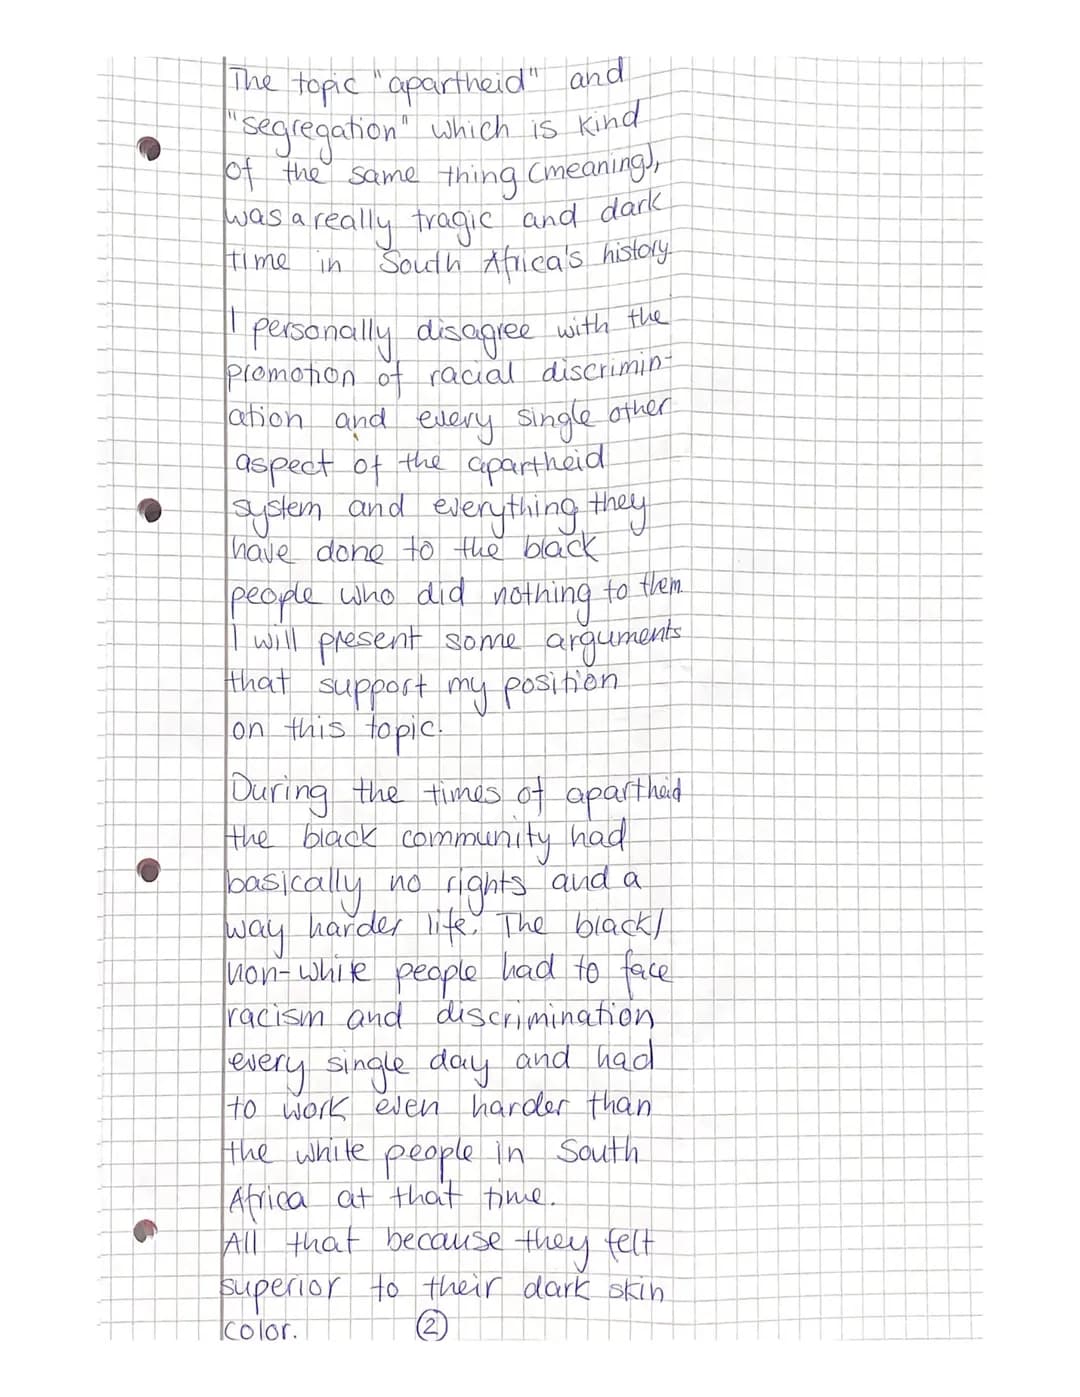 The topic "apartheid" and
"segregation" which is kind
of the same thing (meaning),
was a really tragic and dark
time in South Africa's history.
I personally disagree with the
promotion of racial discrimin-
ation and every single other
aspect of the apartheid
system and everything they
have done to the black
people who did nothing to them.
I will present some arguments
that support my position
on this topic.
During the times of apartheid
the black community had
basically no rights and a
way harder life. The black/
non-white people had to face
racism and discrimination
every single day and had
to work even harder than
the white people in South
Africa at that time.
All that because they felt
superior to their dark skin
color.
2